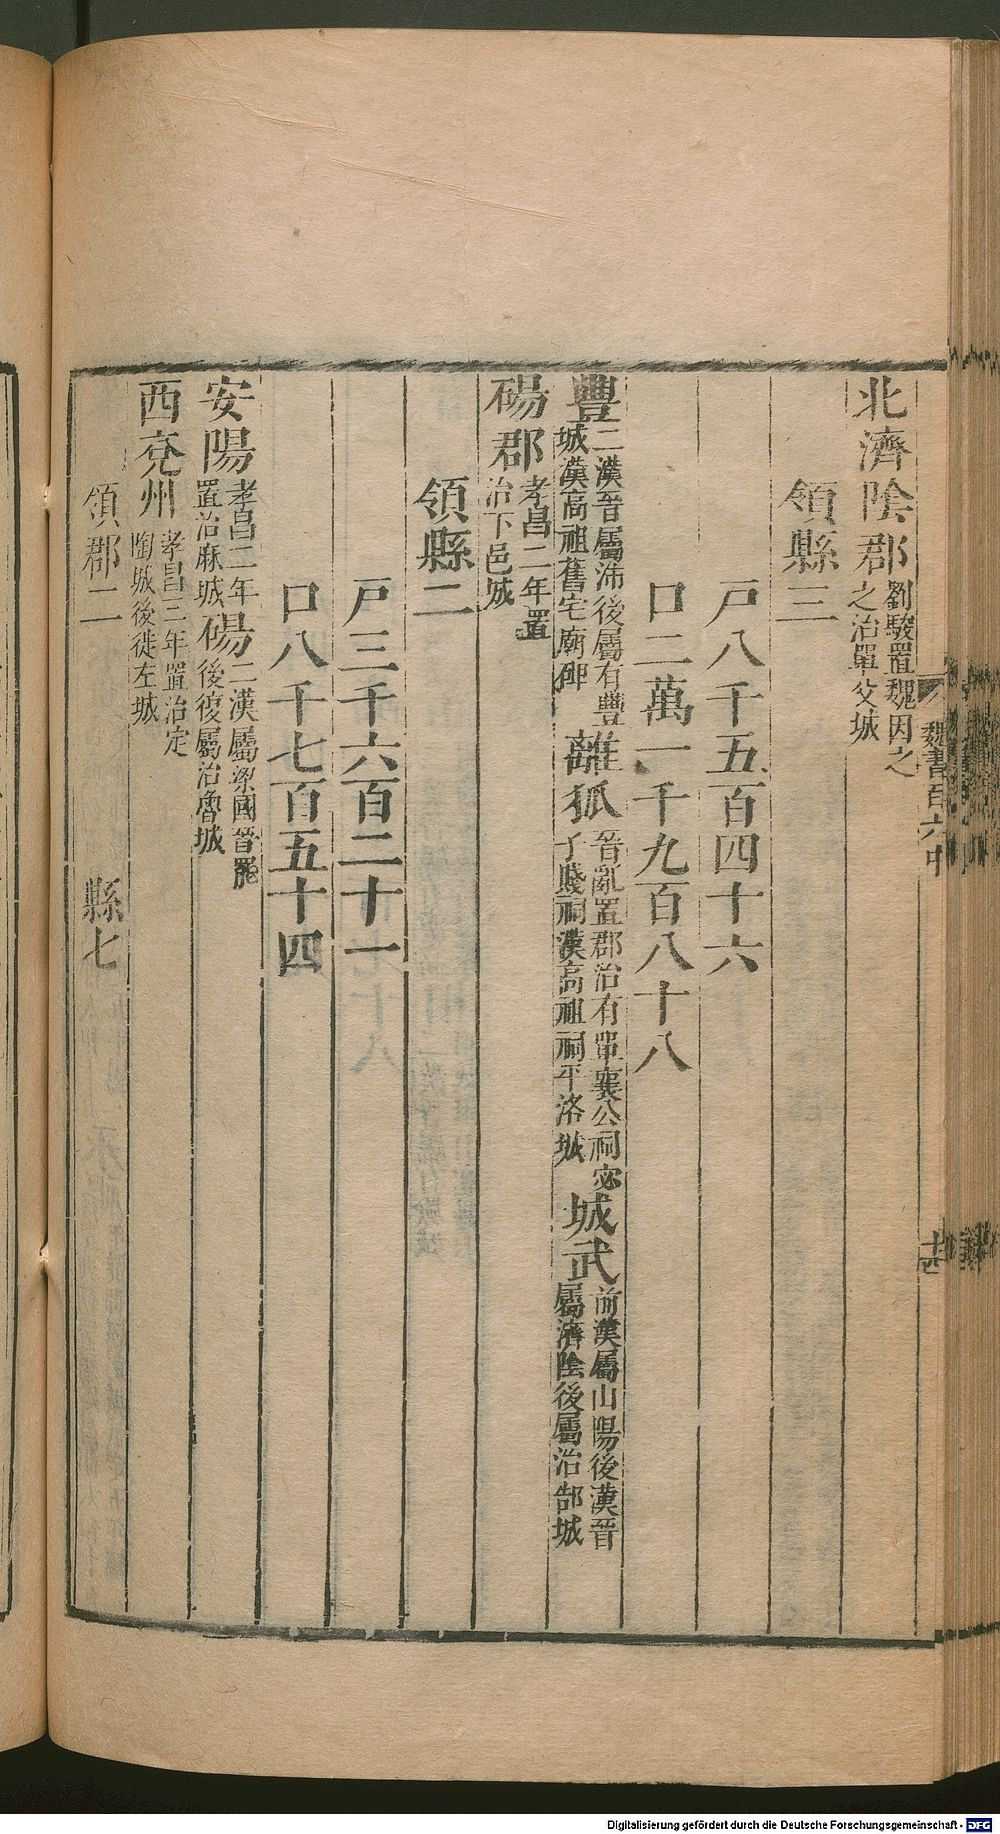 北濟陰郡劉駿置魏因之治單父城
領縣三
戸八千五百四十六
口二萬一千九百八十八
豐二漢晉屬沛後屬有豐城漢高祖舊宅廟碑離狐晉亂置郡治有單襄公祠宓子賤祠漢高祖祠平洛城城武前漢屬山陽後漢晉屬濟陰後屬治郜城
碭郡孝昌二年置治下邑城
領縣二
戸三千六百二十一
口八千七百五十四
安陽孝昌二年置治麻城碭二漢屬梁國晉罷後復屬治魯城
西兗州孝昌三年置治定陶城後徙左城
領郡二 縣七
魏書百六中
十四
Digitalisierung gefördert durch die Deutsche Forschungsgemeinschaft - DFG